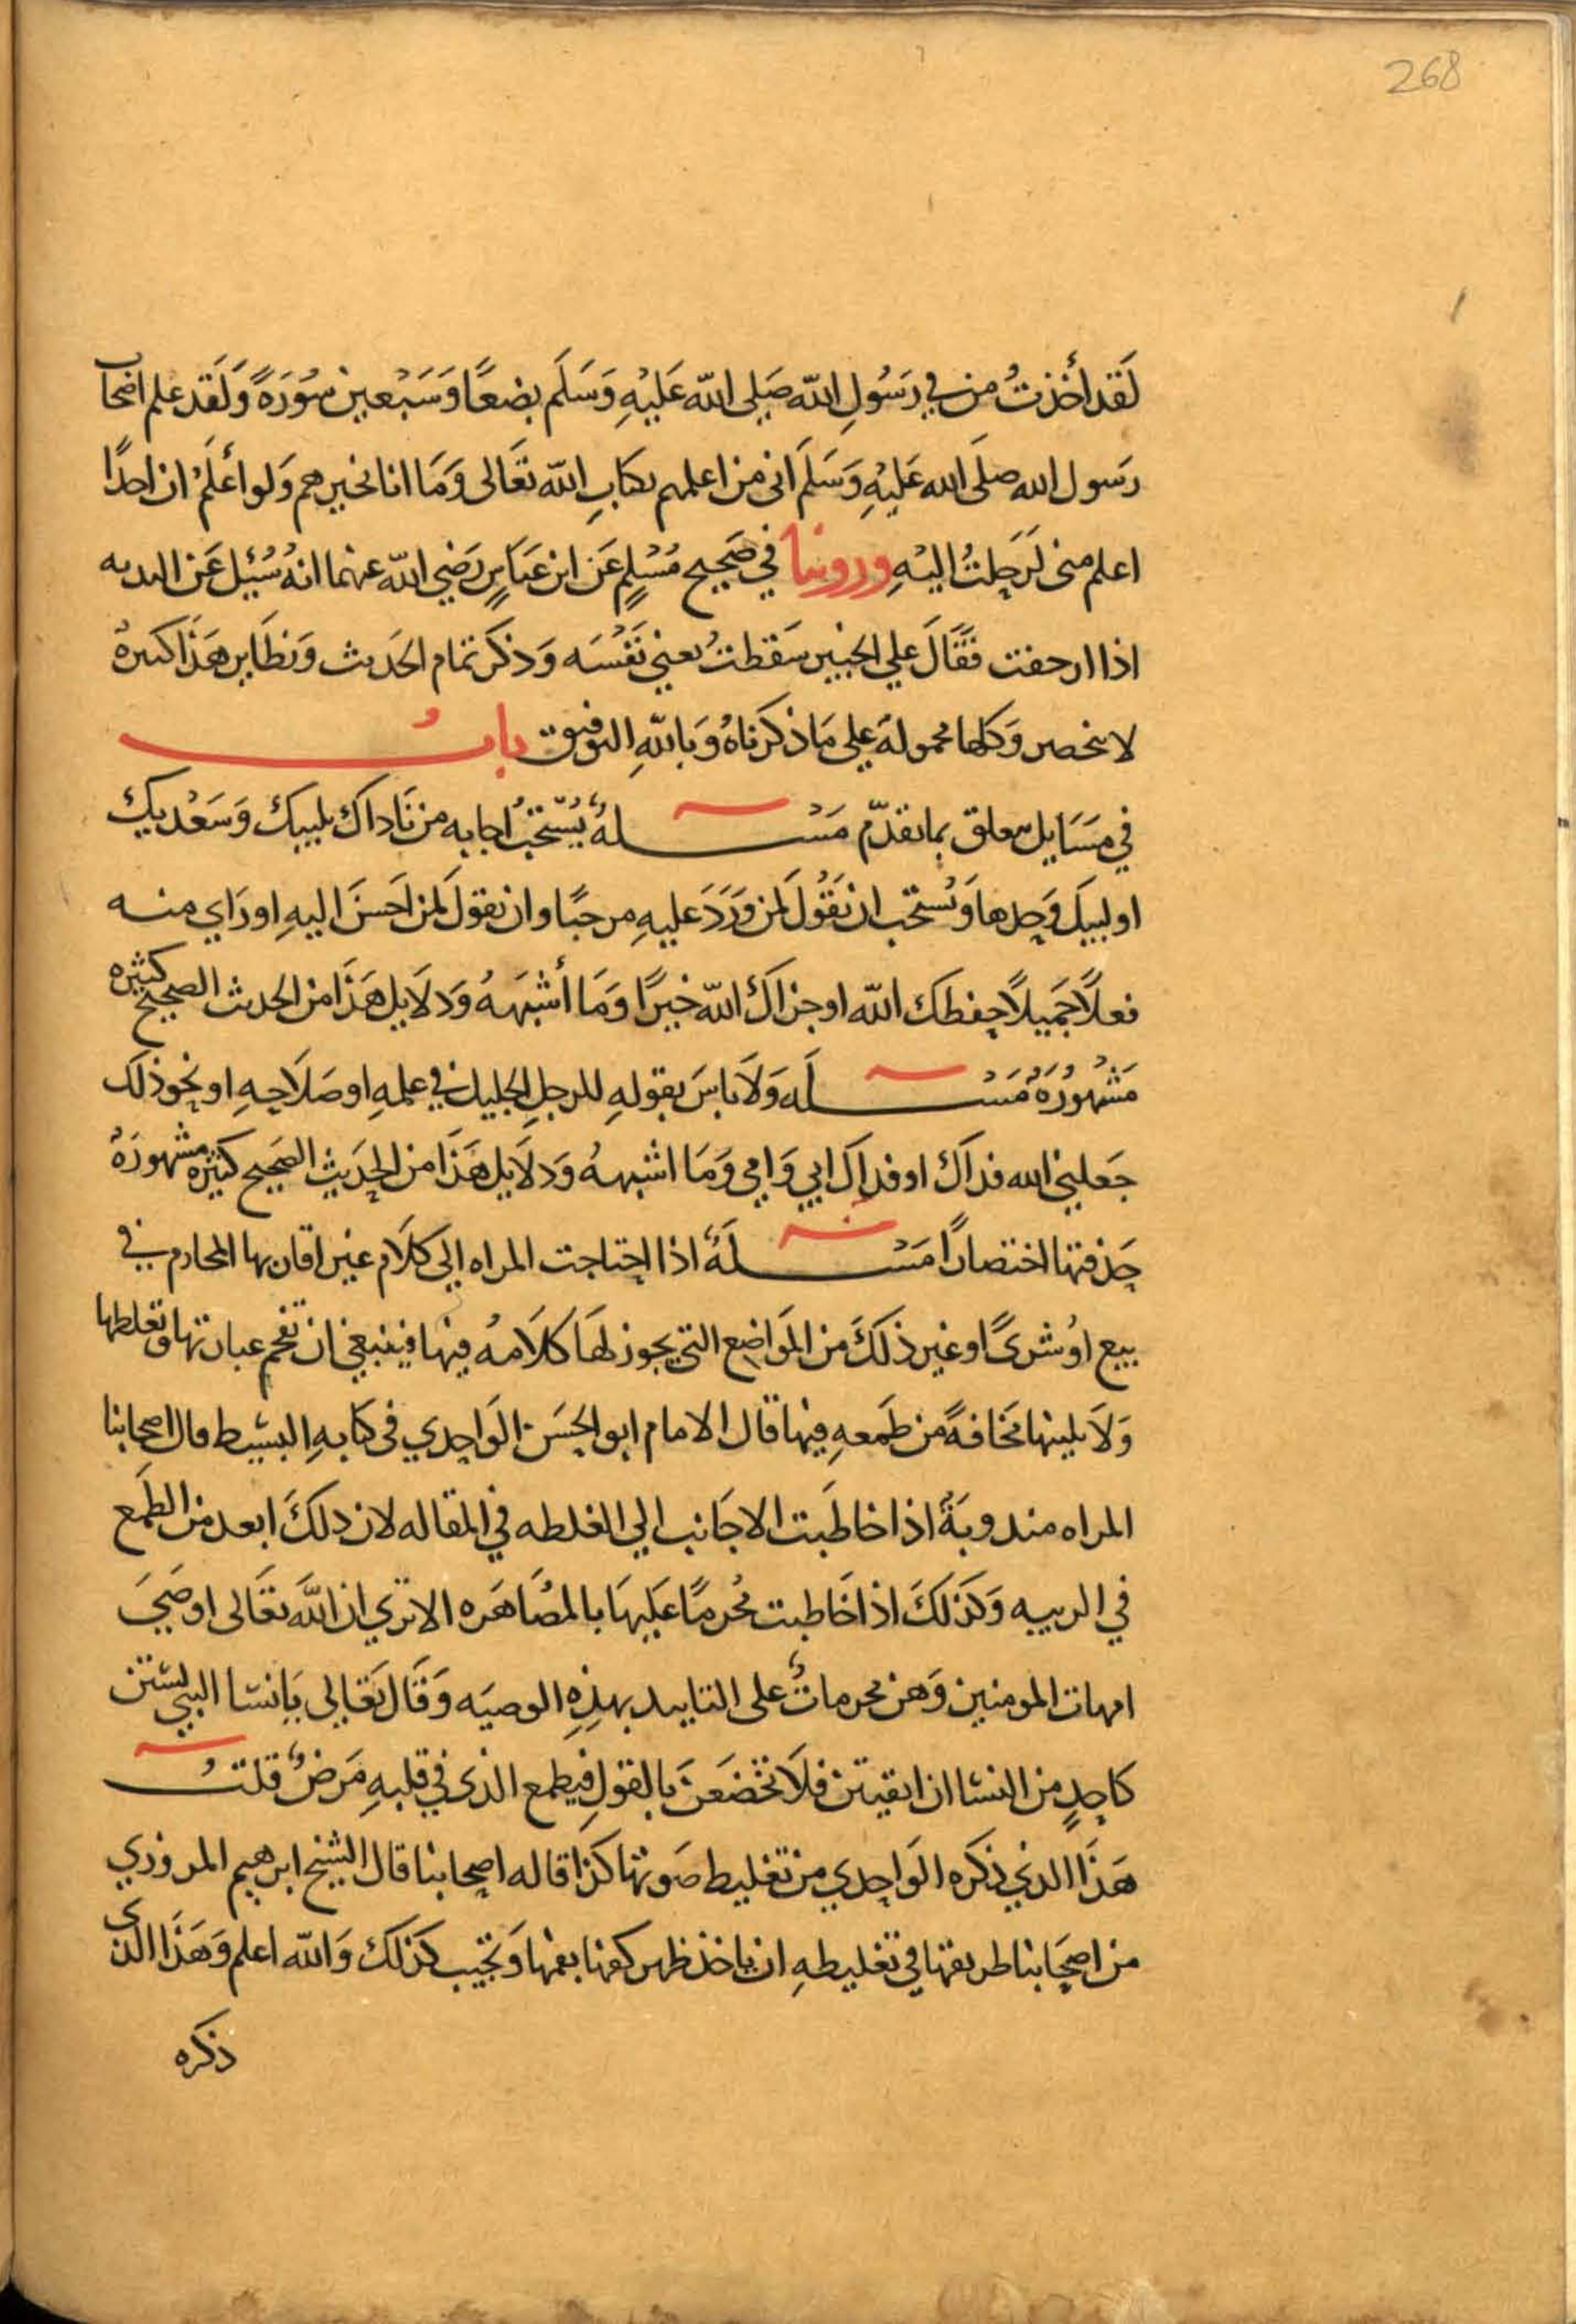 268
لَقَد أَخَذتُ من في رَسُولِ الله صَلى الله عَليْهِ وَسَلَم بضعًا وَسَبْعين سُورَةً وَلَقَد علم اصحاب
رَسول الله صلى الله عَليْهِ وَسَلَم انى من اعلمهم بكتابِ الله تعَالى وَمَا انا بخيرهم وَلو أعْلَمُ ان احدًا
اعلم منى لرَحلتُ اليْهِ وروينا في صَحيح مُسْلمٍ عَن ابن عَباسٍ رَضي الله عنهما انهُ سُئيل عَن البدنه
اذا ازحفت فقَالَ علي الخبير سَقطتُ يعني نَفْسَه وَذكر تمام الحَديث وَنظَاير هَذَا كثيرةُ
لا تنحصر وَكلها محموله علي مَا ذكرنَاهُ وَبالله التوفيق بابُ
في مسَايل تتعلق بما تقدّم مَسْـــلةٌ يُسْتحَبُ اجابه من نَاداكَ بلبيك وَسَعْديك
او لبيك وَحدها وَيُستحب ان يَقُولَ لمن وَرَدَ عليهِ مرحبًا وان يقول لمن احَسنَ اليهِ او رَاي منه
فعلاً جَميلاً حفظك الله او جزاكَ الله خيرًا وَمَا أشبَهَهُ وَدلَايل هَذَا من الحديث الصحيح كثيره
مَشهُورَة مَسْـــلَه وَلَا باسَ بقولهِ للرجلِ الجليل في علمهِ او صَلَاحهِ او نحو ذلك
جَعلني الله فداك او فداكَ ابي وَامي وَمَا اشبههُ وَدلَايل هَذَا من الحَديثِ الصَحيح كثيره مشهورَةُ
حَذفتها اختصارًا مَسْـــلَةٌ اذا احتاجت المراه الى كلَام غير اقاربها المحارم في
بيع اوْ شرىً او غير ذلكَ من المَواضع التي يجوز لهَا كلَامهُ فيها فينبغي ان تفخم عبارتها وتغلظها
وَلَا يلينها مَخافةً من طَمعهِ فيها قال الامام ابو الحسَن الوَاحدي في كتابهِ البسيط قال اصحابنا
المراه مندوبَةٌ اذا خاطَبت الاجَانب الي الغلظه في المقاله لان ذلكَ ابعد من الطَمع
في الريبه وَكذلكَ اذا خَاطبت مُحرمًا عَليهَا بالمصَاهَره الا تري ان الله تعَالى اوصَي
امهات المومنين وَهن محرماتٌ على التابيد بهذهِ الوصيَه وَقَال تعَالي يَا نسا النبي لستن
كاحدٍ من النسا ان اتقيتن فلَا تخضَعَن بالقولِ فيطمع الذي في قلبهِ مَرضٌ قلتُ
هَذَا الذي ذكره الوَاحدي من تغليظ صَوتها كذا قاله اصحابنا قال الشيخ ابرهيم المروزي
من اصحَابنا طريقتها في تغليظهِ ان ياخذ ظهر كفها بفمها وَتجيب كذلك وَالله اعلم وَهَذَا الذي
ذكره